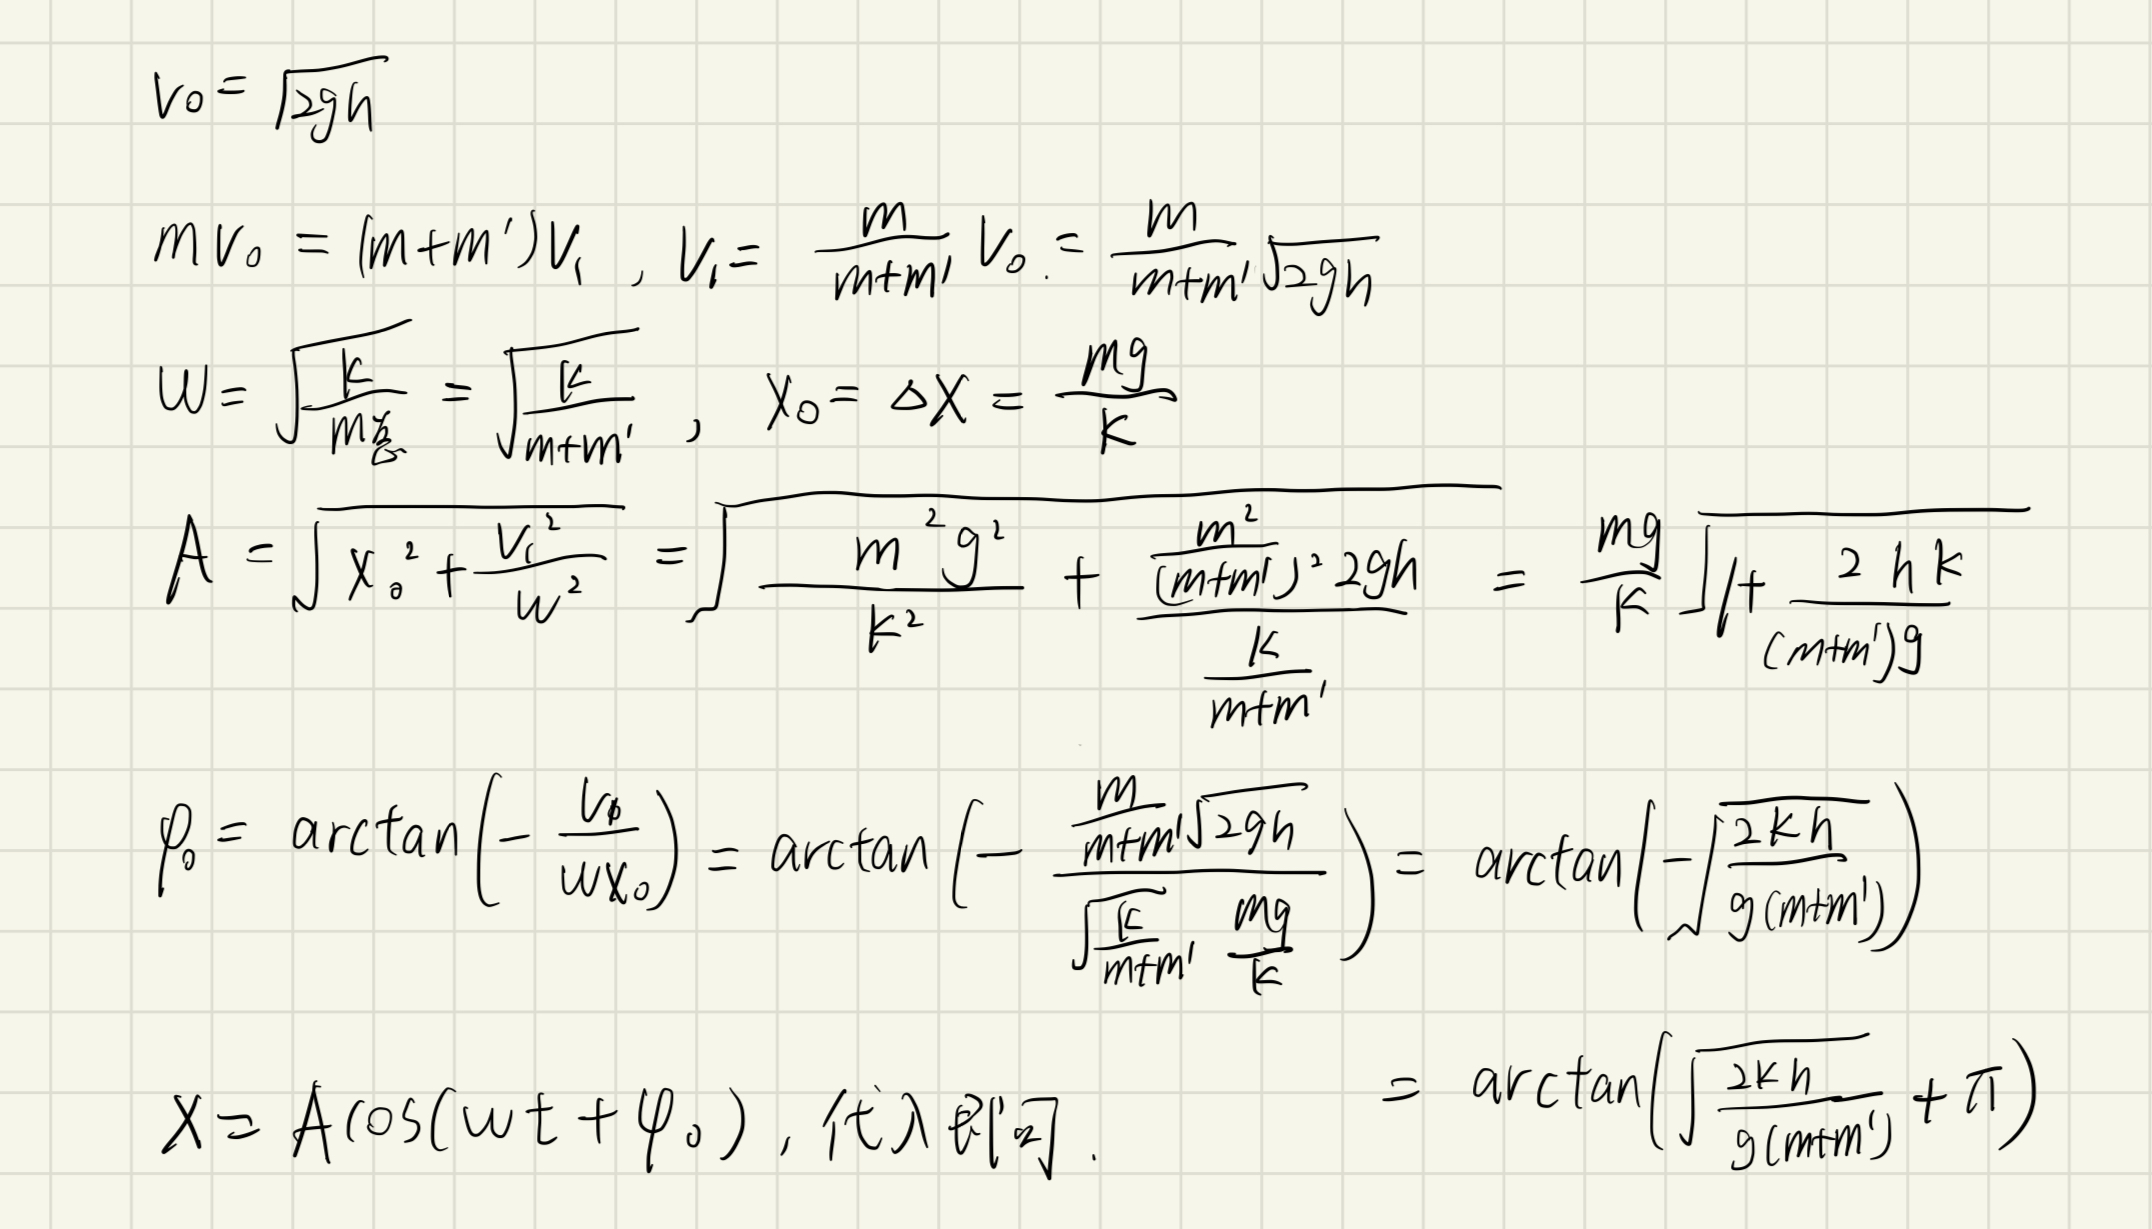 v₀ = √(2gh)
mv₀ = (m+m')v₁ , v₁ = m/(m+m') v₀ = m/(m+m') √(2gh)
w = √(k/m总) = √(k/(m+m')) , x₀ = △x = mg/k
A = √(x₀² + v₁²/w²) = √(m²g²/k² + (m²/(m+m')² 2gh)/(k/(m+m'))) = mg/k √(1 + 2hk/((m+m')g))
φ₀ = arctan(- v₀/(wx₀)) = arctan(- (m/(m+m') √(2gh))/(√(k/(m+m')) mg/k)) = arctan(-√(2kh/(g(m+m'))))
= arctan(√(2kh/(g(m+m'))) + π)
x = Acos(wt + φ₀) , 代入即可.